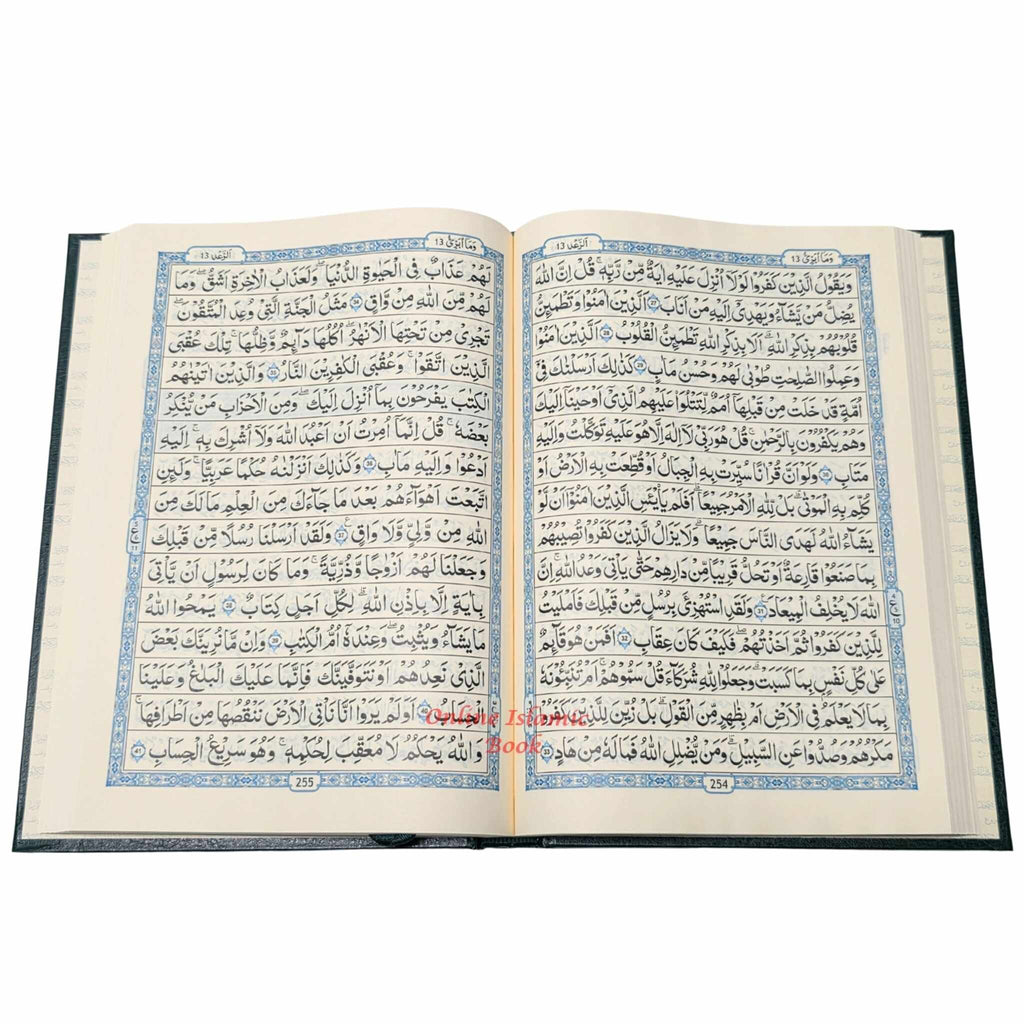 وَمَآ اُبَرِّئُ 13
اَلرَّعْد 13
وَيَقُوْلُ الَّذِيْنَ كَفَرُوْا لَوْلَاۤ اُنْزِلَ عَلَيْهِ اٰيَةٌ مِّنْ رَّبِّهٖ ؕ قُلْ اِنَّ اللّٰهَ
يُضِلُّ مَنْ يَّشَآءُ وَيَهْدِيْۤ اِلَيْهِ مَنْ اَنَابَ 27 اَلَّذِيْنَ اٰمَنُوْا وَتَطْمَئِنُّ
قُلُوْبُهُمْ بِذِكْرِ اللّٰهِ ؕ اَلَا بِذِكْرِ اللّٰهِ تَطْمَئِنُّ الْقُلُوْبُ 28 اَلَّذِيْنَ اٰمَنُوْا
وَعَمِلُوا الصّٰلِحٰتِ طُوْبٰى لَهُمْ وَحُسْنُ مَاٰبٍ 29 كَذٰلِكَ اَرْسَلْنٰكَ فِيْۤ
اُمَّةٍ قَدْ خَلَتْ مِنْ قَبْلِهَاۤ اُمَمٌ لِّتَتْلُوَا۟ عَلَيْهِمُ الَّذِيْۤ اَوْحَيْنَاۤ اِلَيْكَ
وَهُمْ يَكْفُرُوْنَ بِالرَّحْمٰنِ ؕ قُلْ هُوَ رَبِّيْ لَاۤ اِلٰهَ اِلَّا هُوَ عَلَيْهِ تَوَكَّلْتُ وَاِلَيْهِ
مَتَابِ 30 وَلَوْ اَنَّ قُرْاٰنًا سُيِّرَتْ بِهِ الْجِبَالُ اَوْ قُطِّعَتْ بِهِ الْاَرْضُ اَوْ
كُلِّمَ بِهِ الْمَوْتٰى ؕ بَلْ لِّلّٰهِ الْاَمْرُ جَمِيْعًا ؕ اَفَلَمْ يَايْـَٔسِ الَّذِيْنَ اٰمَنُوْۤا اَنْ لَّوْ
يَشَآءُ اللّٰهُ لَهَدَى النَّاسَ جَمِيْعًا ؕ وَلَا يَزَالُ الَّذِيْنَ كَفَرُوْا تُصِيْبُهُمْ
بِمَا صَنَعُوْا قَارِعَةٌ اَوْ تَحُلُّ قَرِيْبًا مِّنْ دَارِهِمْ حَتّٰى يَاْتِيَ وَعْدُ اللّٰهِ ؕ اِنَّ
اللّٰهَ لَا يُخْلِفُ الْمِيْعَادَ 31 وَلَقَدِ اسْتُهْزِئَ بِرُسُلٍ مِّنْ قَبْلِكَ فَاَمْلَيْتُ
لِلَّذِيْنَ كَفَرُوْا ثُمَّ اَخَذْتُهُمْ ۫ فَكَيْفَ كَانَ عِقَابِ 32 اَفَمَنْ هُوَ قَآئِمٌ
عَلٰى كُلِّ نَفْسٍۭ بِمَا كَسَبَتْ ۚ وَجَعَلُوْا لِلّٰهِ شُرَكَآءَ ؕ قُلْ سَمُّوْهُمْ ؕ اَمْ تُنَبِّئُوْنَهٗ
بِمَا لَا يَعْلَمُ فِي الْاَرْضِ اَمْ بِظَاهِرٍ مِّنَ الْقَوْلِ ؕ بَلْ زُيِّنَ لِلَّذِيْنَ كَفَرُوْا
مَكْرُهُمْ وَصُدُّوْا عَنِ السَّبِيْلِ ؕ وَمَنْ يُّضْلِلِ اللّٰهُ فَمَا لَهٗ مِنْ هَادٍ 33
254
وَمَآ اُبَرِّئُ 13
اَلرَّعْد 13
لَهُمْ عَذَابٌ فِي الْحَيٰوةِ الدُّنْيَا وَلَعَذَابُ الْاٰخِرَةِ اَشَقُّ ۚ وَمَا
لَهُمْ مِّنَ اللّٰهِ مِنْ وَّاقٍ 34 مَثَلُ الْجَنَّةِ الَّتِيْ وُعِدَ الْمُتَّقُوْنَ ؕ
تَجْرِيْ مِنْ تَحْتِهَا الْاَنْهٰرُ ؕ اُكُلُهَا دَآئِمٌ وَّظِلُّهَا ؕ تِلْكَ عُقْبَى
الَّذِيْنَ اتَّقَوْا ۖ وَّعُقْبَى الْكٰفِرِيْنَ النَّارُ 35 وَالَّذِيْنَ اٰتَيْنٰهُمُ
الْكِتٰبَ يَفْرَحُوْنَ بِمَاۤ اُنْزِلَ اِلَيْكَ وَمِنَ الْاَحْزَابِ مَنْ يُّنْكِرُ
بَعْضَهٗ ؕ قُلْ اِنَّمَاۤ اُمِرْتُ اَنْ اَعْبُدَ اللّٰهَ وَلَاۤ اُشْرِكَ بِهٖ ؕ اِلَيْهِ
اَدْعُوْا وَاِلَيْهِ مَاٰبِ 36 وَكَذٰلِكَ اَنْزَلْنٰهُ حُكْمًا عَرَبِيًّا ؕ وَلَئِنِ
اتَّبَعْتَ اَهْوَآءَهُمْ بَعْدَ مَا جَآءَكَ مِنَ الْعِلْمِ مَا لَكَ مِنَ
اللّٰهِ مِنْ وَّلِيٍّ وَّلَا وَاقٍ 37 وَلَقَدْ اَرْسَلْنَا رُسُلًا مِّنْ قَبْلِكَ
وَجَعَلْنَا لَهُمْ اَزْوَاجًا وَّذُرِّيَّةً ؕ وَمَا كَانَ لِرَسُوْلٍ اَنْ يَّاْتِيَ
بِاٰيَةٍ اِلَّا بِاِذْنِ اللّٰهِ ؕ لِكُلِّ اَجَلٍ كِتَابٌ 38 يَمْحُوا اللّٰهُ
مَا يَشَآءُ وَيُثْبِتُ ۚ وَعِنْدَهٗۤ اُمُّ الْكِتٰبِ 39 وَاِنْ مَّا نُرِيَنَّكَ بَعْضَ
الَّذِيْ نَعِدُهُمْ اَوْ نَتَوَفَّيَنَّكَ فَاِنَّمَا عَلَيْكَ الْبَلٰغُ وَعَلَيْنَا
الْحِسَابُ 40 اَوَلَمْ يَرَوْا اَنَّا نَاْتِي الْاَرْضَ نَنْقُصُهَا مِنْ اَطْرَافِهَا ؕ
وَاللّٰهُ يَحْكُمُ لَا مُعَقِّبَ لِحُكْمِهٖ ؕ وَهُوَ سَرِيْعُ الْحِسَابِ 41
255
Online Islamic
Book